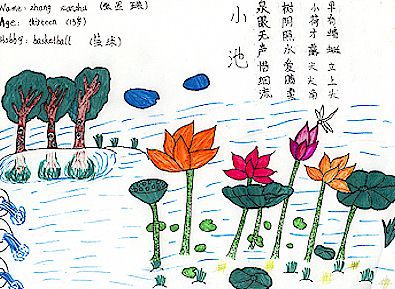 Name: zhang
Age: thirteen (13岁)
Hobby: basketball (篮球)
小池
泉眼无声惜细流
树阴照水爱晴柔
小荷才露尖尖角
早有蜻蜓立上头